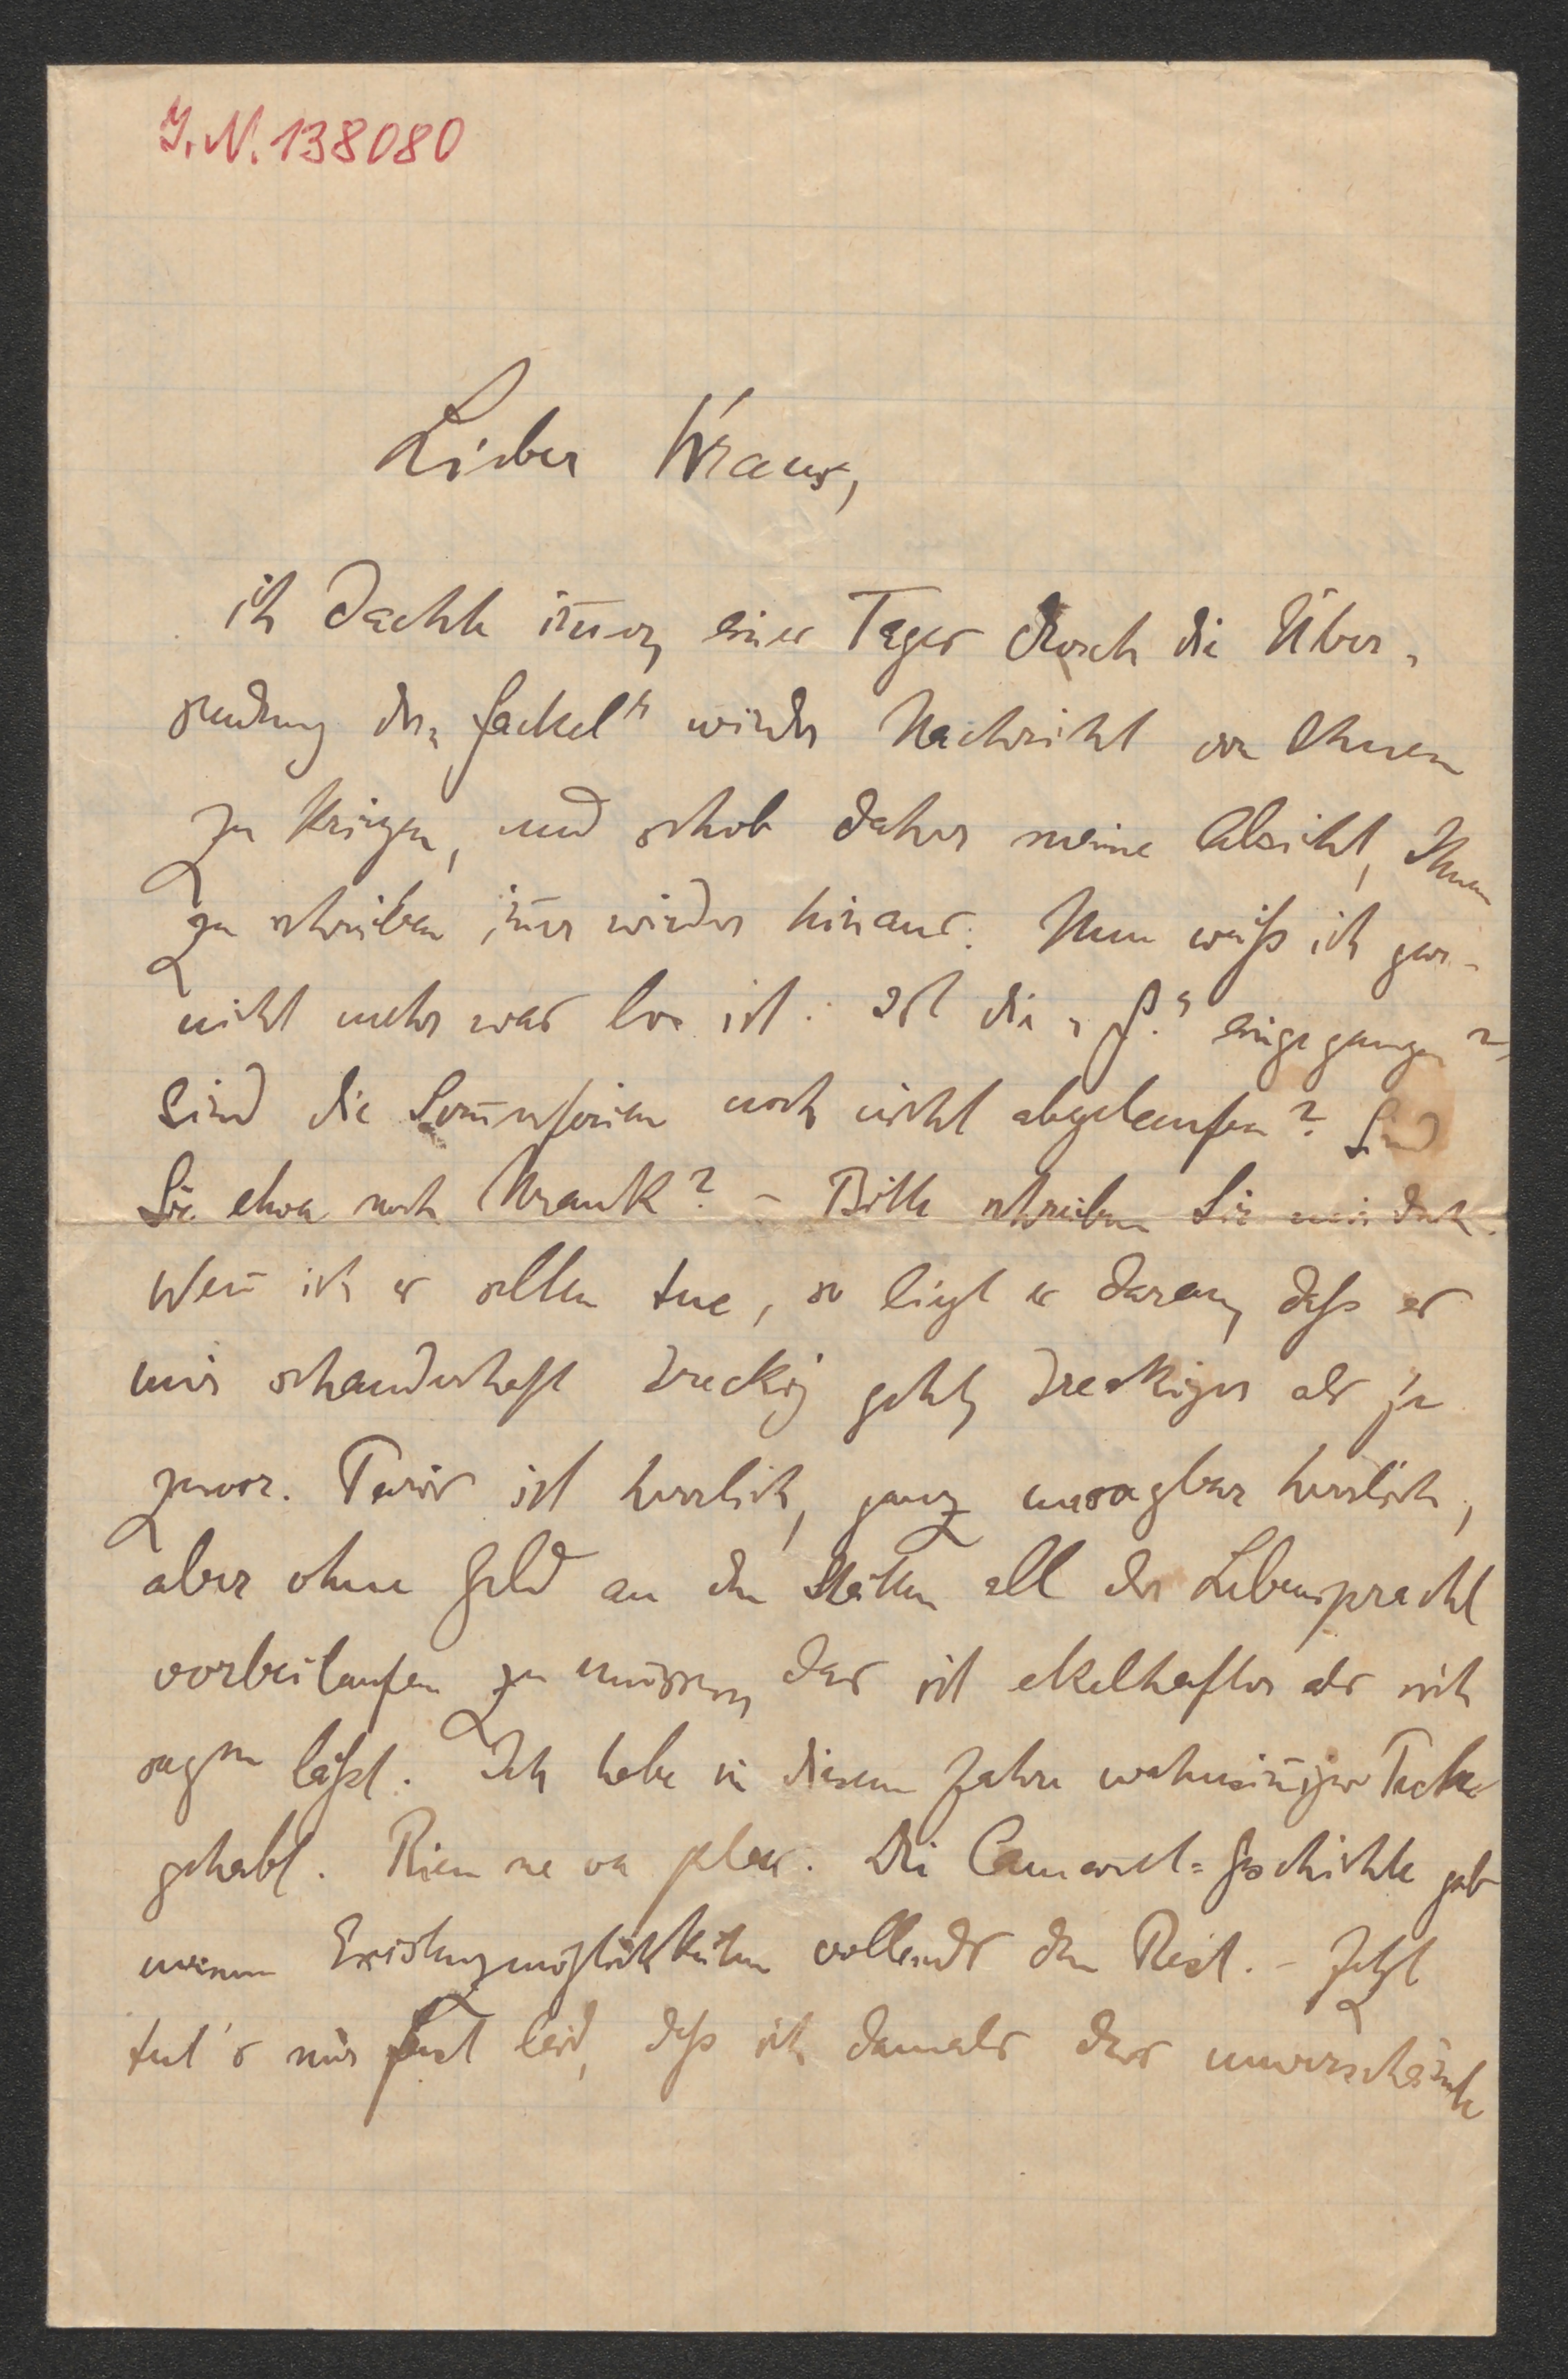 J.N. 138080
Lieber Kraus,
ich dachte im̅er, eines Tages durch die Über-
sendung der „Fackel“ wieder Nachricht von Ihnen
zu kriegen, und schob daher meine Absicht, Ihnen
zu schreiben im̅er wieder hinaus. Nun weiß ich gar-
nicht mehr was los ist. Ist die „F.“ eingegangen?
Sind die Som̅erferien noch nicht abgelaufen? Sind
Sie etwa noch krank? – Bitte schreiben Sie mir doch.
Wen̅ ich es selten tue, so liegt es daran, daß es
mir schauderhaft dreckig geht, dreckiger als je
zuvor. Paris ist herrlich, ganz unsagbar herrlich,
aber ohne Geld an den Stätten all der Lebenspracht
vorbeilaufen zu müssen, das ist ekelhafter als sich
sagen läßt. Ich habe in diesem Jahre wahnsin̅iges Pech
gehabt. Rien ne va plus. Die Geschichte gab
meinen Existenzmöglichkeiten vollends den Rest. – Jetzt
tut's mir fast leid, daß ich damals das unverschämte